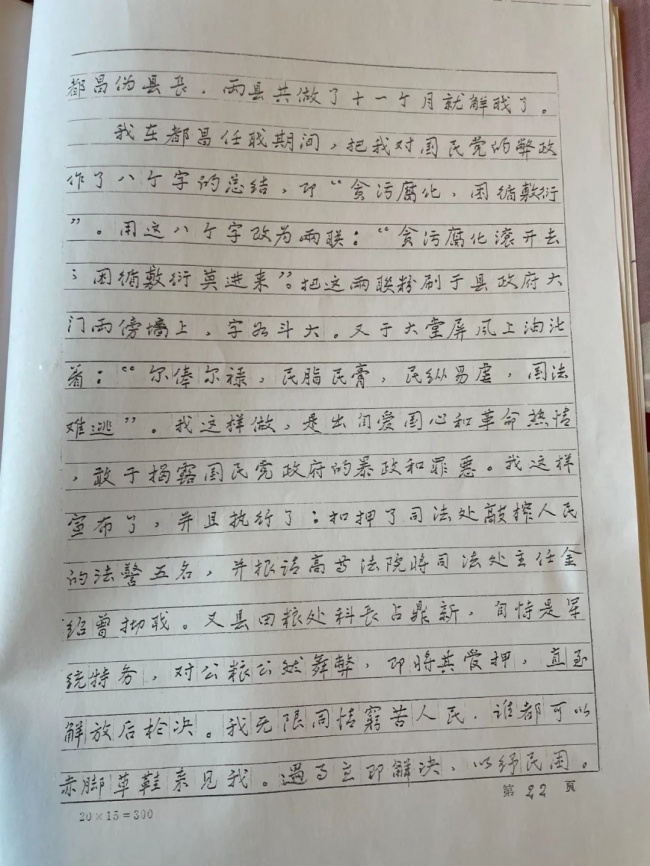 都昌伪县长，两县共做了十一个月就解职了。
我在都昌任职期间，把我对国民党的弊政
作了八个字的总结，即“贪污腐化，因循敷衍
”。用这八个字改为两联：“贪污腐化滚开去
；因循敷衍莫进来”。把这两联粉刷于县政府大
门两傍墙上，字如斗大。又于大堂屏风上油沘
着：“尔俸尔禄，民脂民膏，民纵易虐，国法
难逃”。我这样做，是出自爱国心和革命热情
，敢于揭露国民党政府的暴政和罪恶。我这样
宣布了，并且执行了：扣押了司法处敲榨人民
的法警五名，并报请高等法院将司法处主任金
绍曾拗职。又县田粮处科长占鼎新，自恃是军
统特务，对公粮公然舞弊，即将其管押，直至
解放后枪决。我无限同情窮苦人民，谁都可以
赤脚草鞋来见我。遇事立即解决，以纾民困。
第 22 页
20×15=300